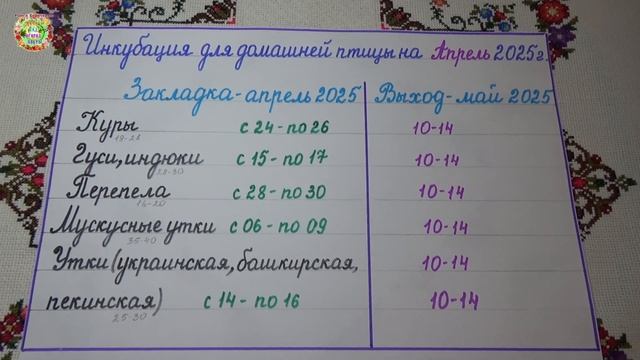 Инкубация для домашней птицы на Апрель 2025г.
Закладка - апрель 2025 Выход - май 2025
Куры с 24 - по 26 10-14
Гуси, индюки с 15 - по 17 10-14
28-30
Перепела с 28 - по 30 10-14
Мускусные утки с 06 - по 09 10-14
35-40
Утки (украинская, башкирская, 10-14
пекинская) с 14 - по 16 10-14
25-30